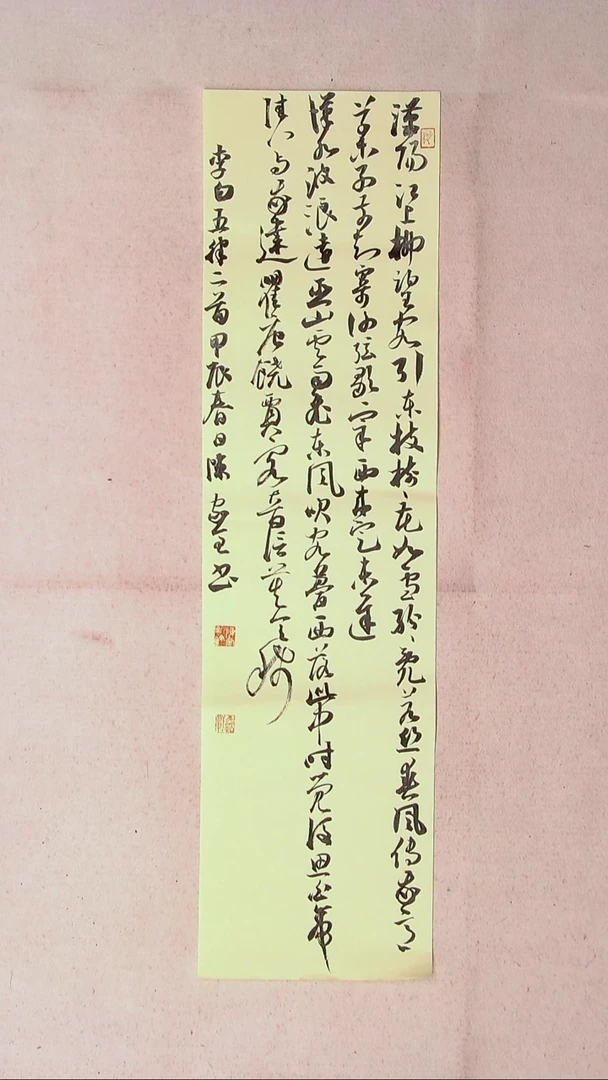 漢陽江上柳望客引東枝樹々花如雪紛々亂若絲春風傳我意
草木別前知寄謝弦歌宰西來定未遲
漢水波浪遠巫山雲雨飛東風吹客夢西落此中時覺後思白帝
佳人與我違瞿唐饒賈客音信莫令稀
李白五律二首甲辰春日陳書